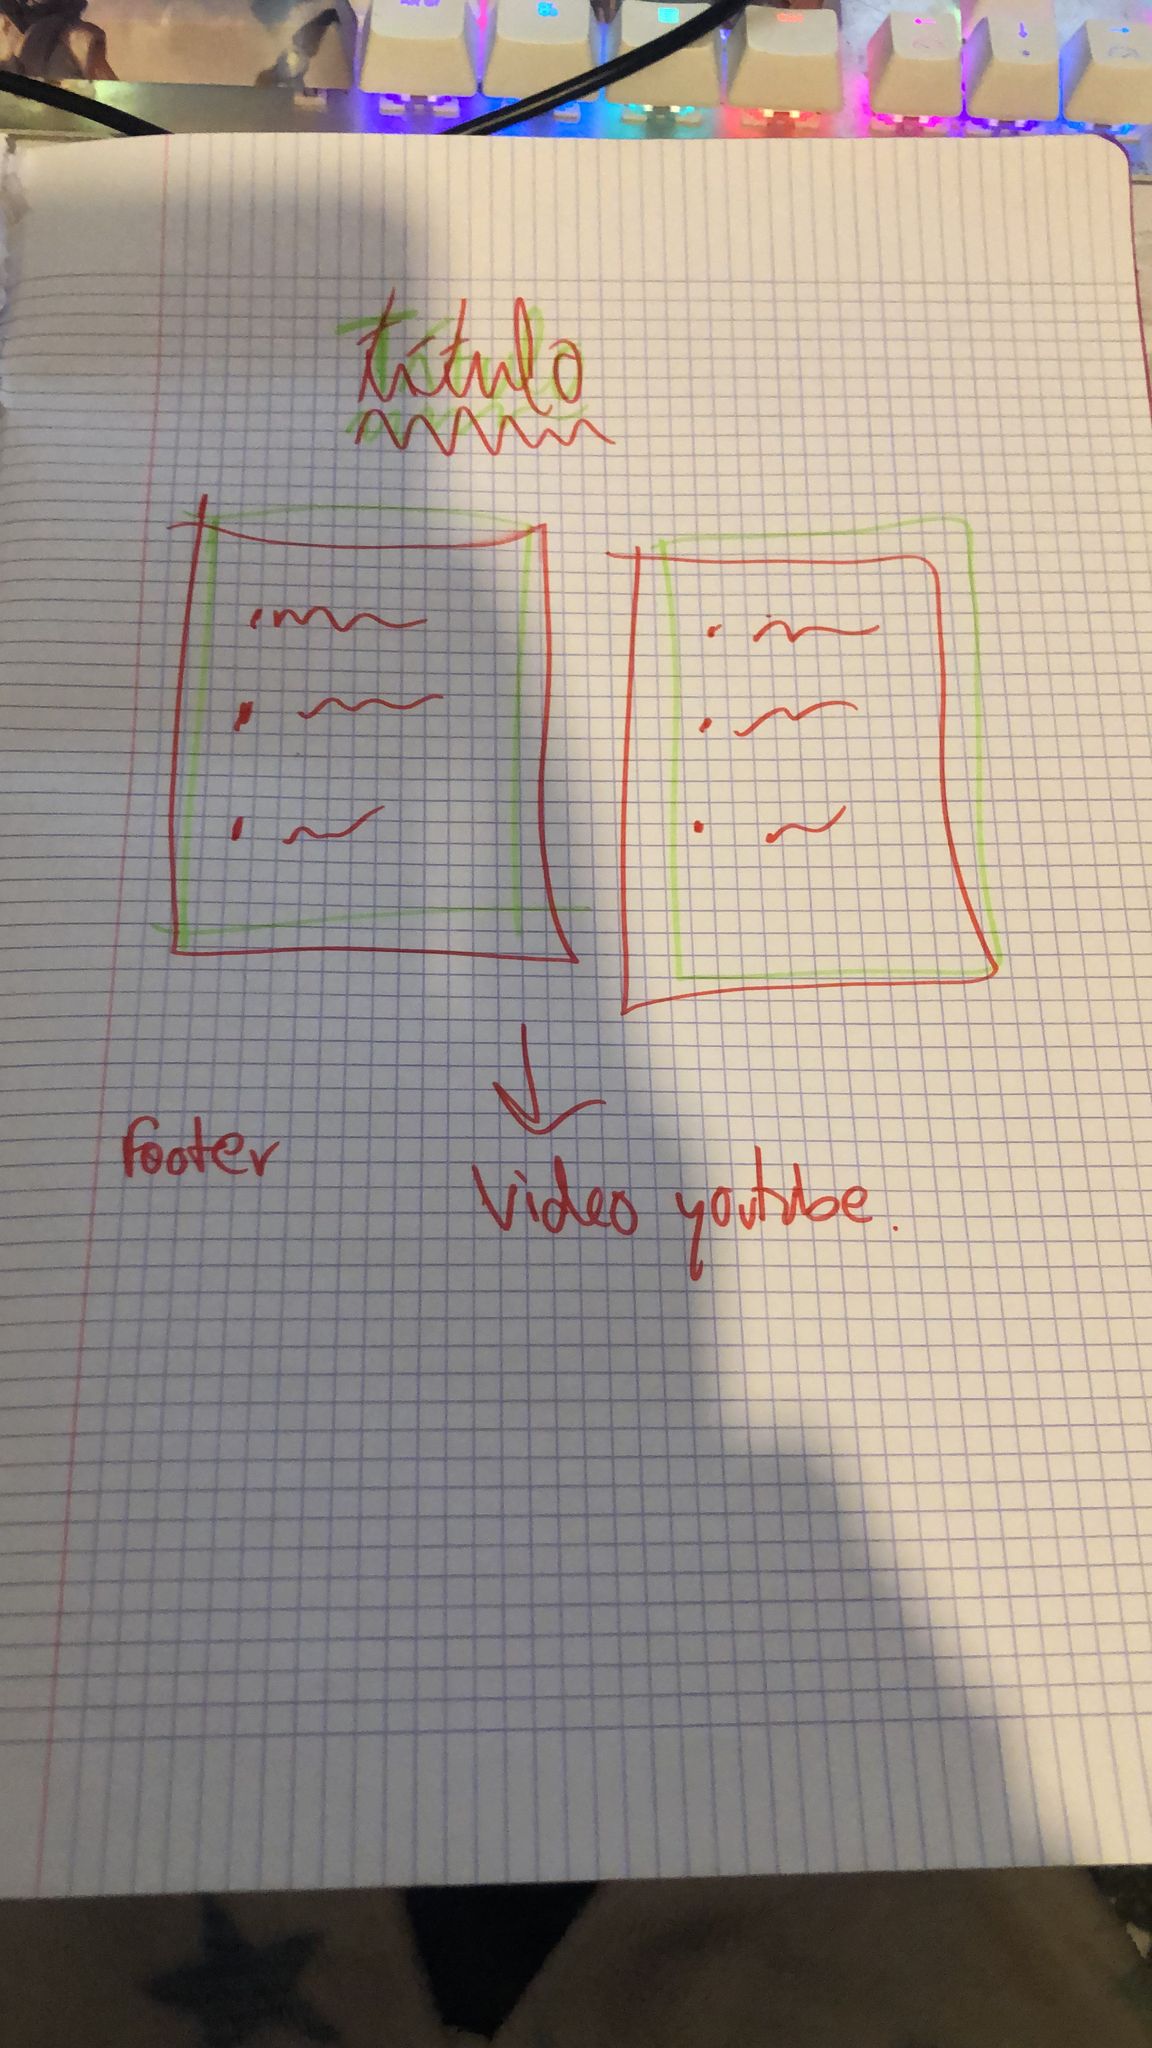 título
footer
Video youtube.